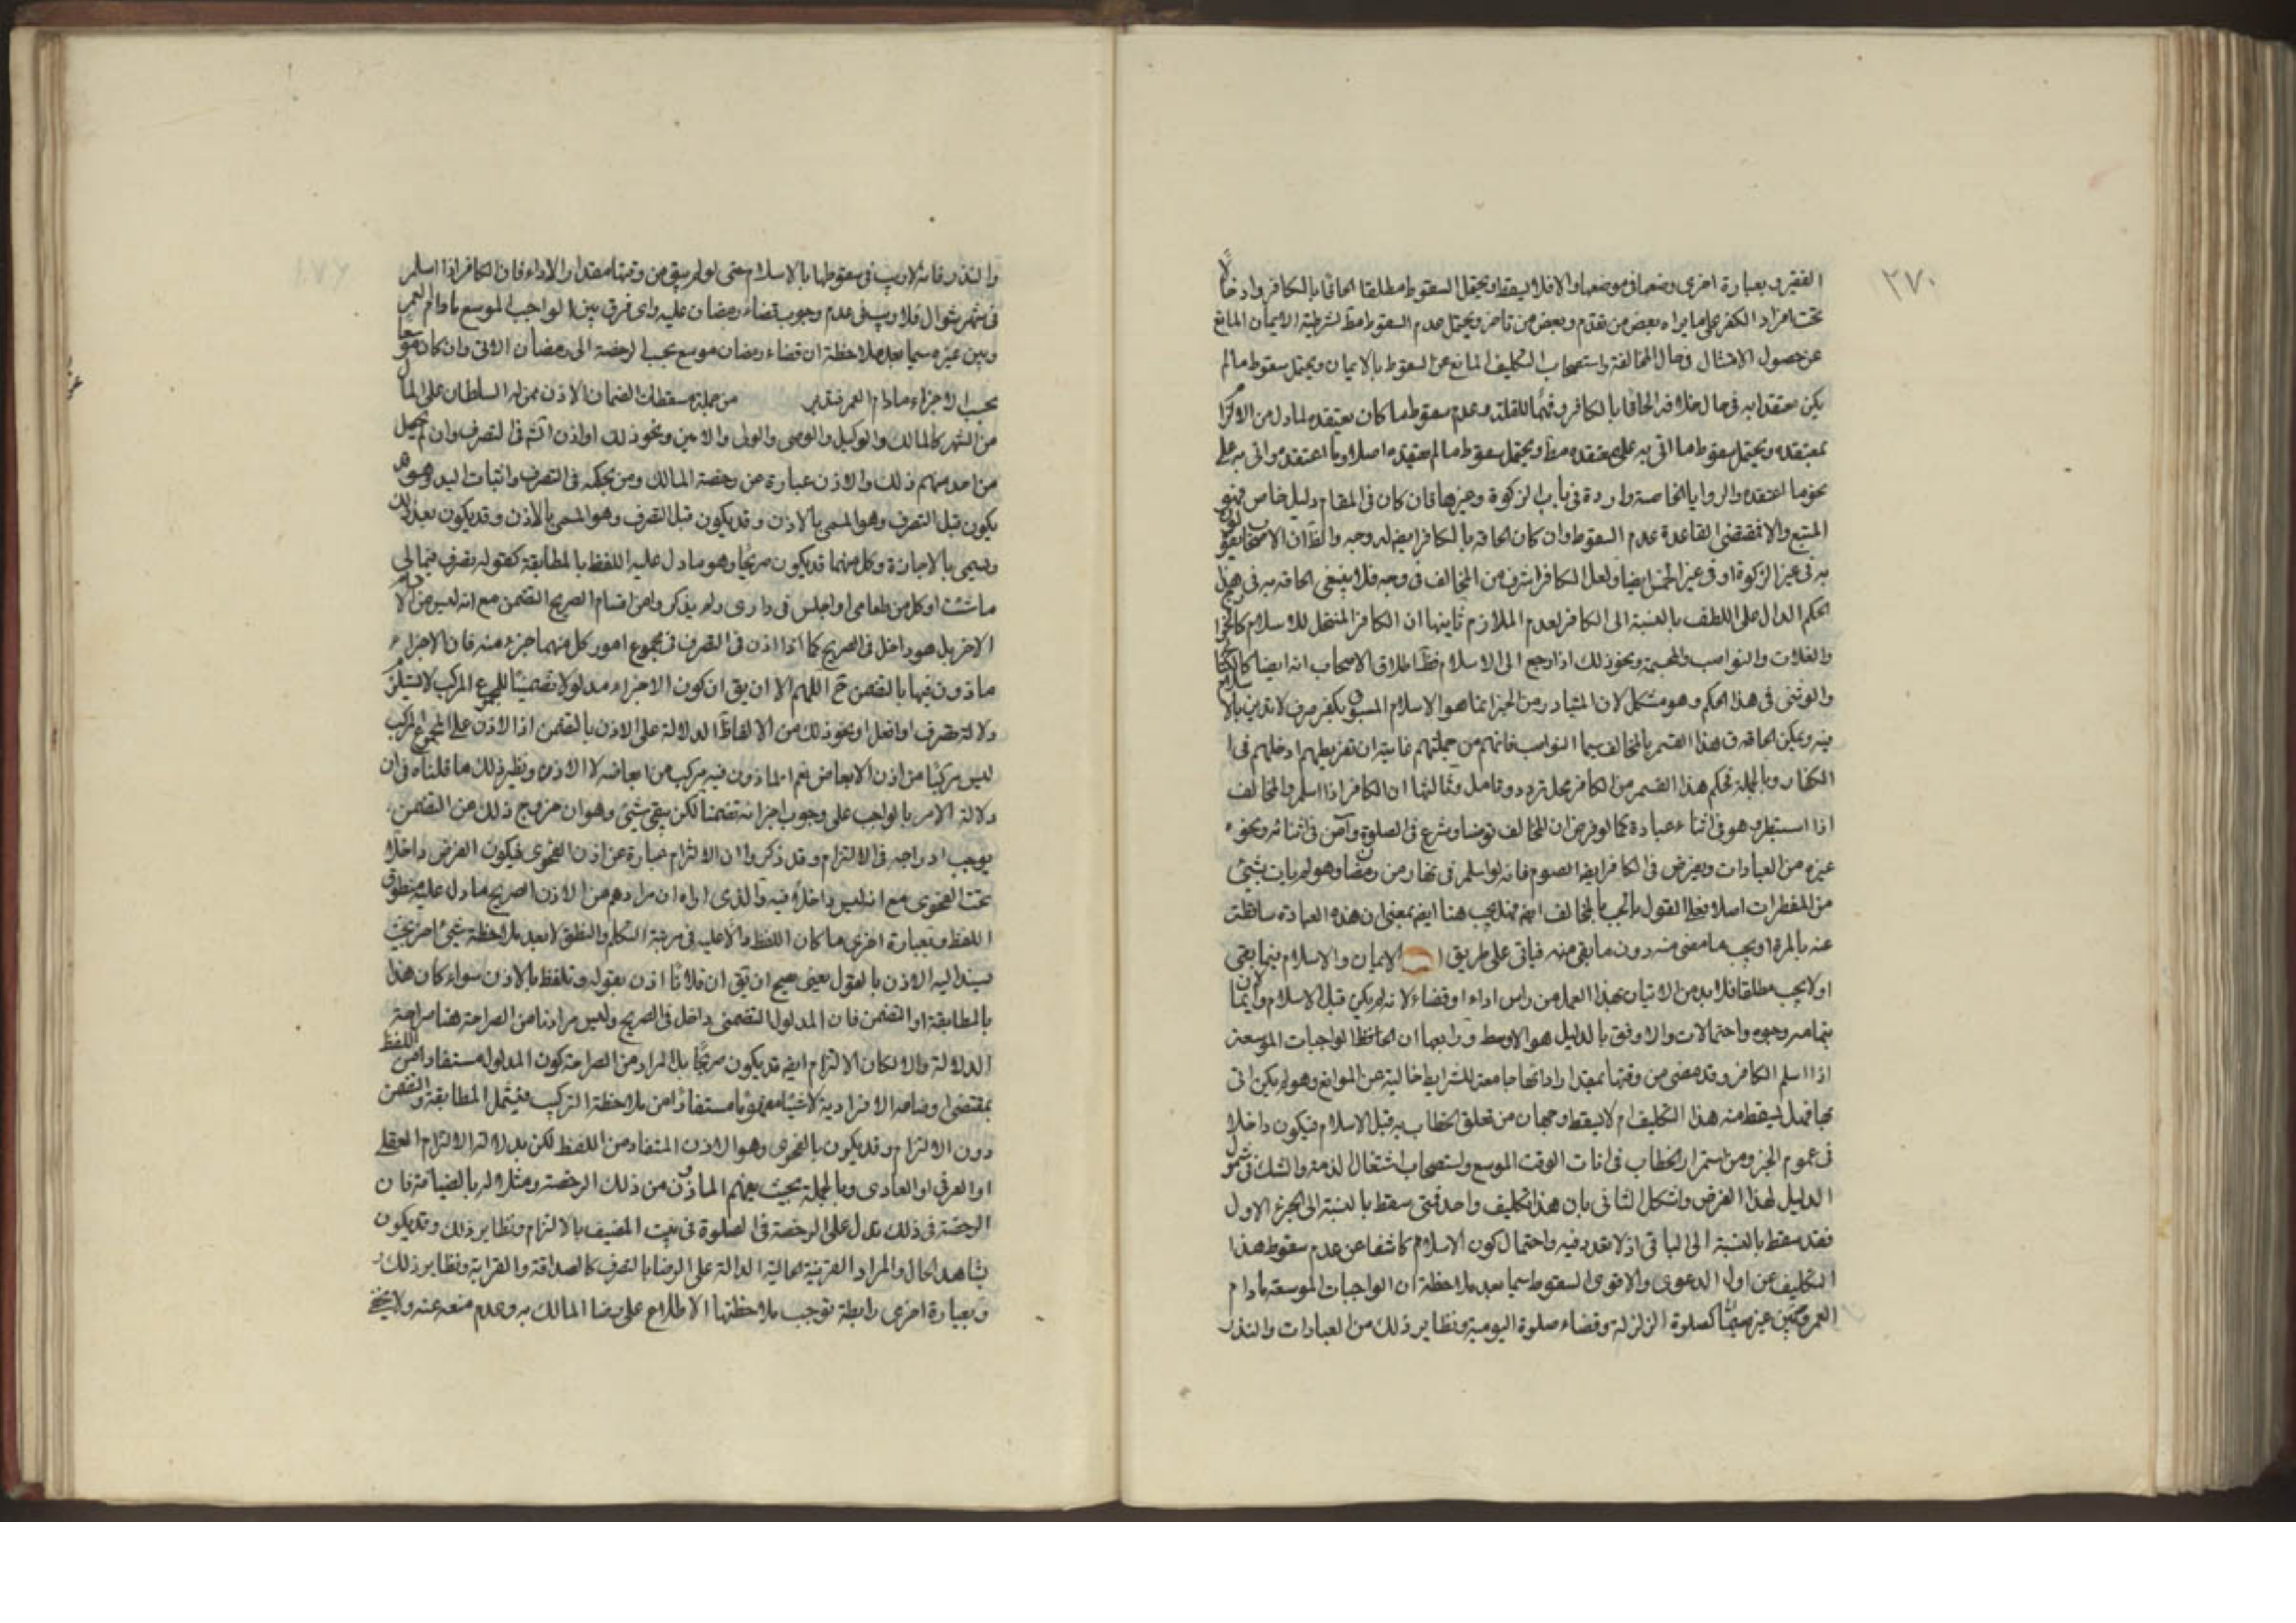 ٢٧٠
الفقير وبعبارة اخرى وضعها فى موضعها والا فلا يسقط ويحتمل السقوط مطلقا الحاقا بالكافر وادخالا
تحت افراد الكفر على ما يراه بعض من تقدم وبعض من تاخر ويحتمل عدم السقوط مط لشرطية الايمان المانع
عن حصول الامتثال فى حال المخالفة واستصحاب التكليف المانع عن السقوط بالايمان ويحتمل سقوط ما لم
يكن معتقدا به فى حال خلافه الحاقا بالكافر وعدم سقوط ما كان يعتقده
بمعتقده ويحتمل سقوط ما اتى به على معتقده مط ويحتمل سقوط ما لم يعتقده اصلا وما اعتقده واتى به على
نحو ما اعتقده والروايا الخاصة واردة فى باب الزكوة وغيرها فان كان فى المقام دليل خاص فهو
المتبع والا فمقتضى القاعدة عدم السقوط وان كان الحاقه بالكافر ايضا له وجه والظ ان الاصحاب
به فى غير الزكوة او فى غير الخمس ايضا ولعل الكافر اشرف من المخالف فى وجه فلا ينبغى الحاقه به فى هذا
الحكم الدال على اللطف بالنسبة الى الكافر لعدم الملازم ثانيها ان الكافر المنتحل للاسلام كالخوارج
والغلات والنواصب والمجسمة ونحو ذلك اذا رجع الى الاسلام فظ اطلاق الاصحاب انه ايضا كالكتابى
والوثنى فى هذا الحكم وهو مشكل لان المتبادر من الخبر انما هو الاسلام المسبوق بكفر صرف لا تدين بالاسلام
فيه ويمكن الحاقه فى هذا القسم بالمخالف سيما النواصب فانهم من جملتهم غايته ان تفريطهم ادخلهم فى
الكفار وبالجملة فحكم هذا القسم من الكافر محل تردد وتامل وثالثها ان الكافر اذا اسلم والمخالف
اذا استبصر وهو فى اثناء عبادة كما لو فرض ان المخالف توضا وشرع فى الصلوة وآمن فى اثنائه ونحوه
غيره من العبادات ويفرض فى الكافر ايضا الصوم فانه لو اسلم فى نهار من رمضان وهو لم يات بشىء
من المفطرات اصلا فعلى القول بالجب بالمخالف ايضا فهل يجب هنا ايضا بمعنى ان هذه العبادة ساقطة
عنه بالمرة او يجب ما مضى منه دون ما بقى منه فياتى على طريق الايمان والاسلام فيما بقى
او لا يجب مطلقا فلا بد من الاتيان بهذا العمل من راس اداء او قضاء لانه لم يكن قبل الاسلام
بتمامه وجوه واحتمالات والاوفق بالدليل هو الاوسط ورابعها ان الحافظ الواجبات الموسعة
اذا اسلم الكافر وقد مضى من وقتها بمقدار ادائها جامعة للشرايط خالية عن الموانع وهو لم يكن اتى
بها فهل يسقط منه هذا التكليف ام لا يسقط وجهان من تعلق الخطاب به قبل الاسلام فيكون داخلا
فى عموم الخبر ومن استمرار الخطاب فى انات الوقت الموسع واستصحاب اشتغال الذمة والشك فى شمول
الدليل لهذا الفرض واشكل الثانى بان هذا تكليف واحد فمتى سقط بالنسبة الى الجزء الاول
فقد سقط بالنسبة الى الباقى اذ لا تعدد فيه واحتمال كون الاسلام كاشفا عن عدم سقوط هذا
التكليف عن اول الدعوى والاقوى السقوط سيما بعد ملاحظة ان الواجبات الموسعة مادام
العمر كصلوة الزلزلة وقضاء صلوة اليومية ونظاير ذلك من العبادات والنذر
والنذر فانه لا ريب فى سقوطها بالاسلام متى لو لم يبق من وقتها مقدار الاداء فان الكافر اذا اسلم
فى شهر شوال فلا ريب فى عدم وجوب قضاء رمضان عليه واى فرق بين الواجب الموسع مادام العمر
وبين غيره سيما بعد ملاحظة ان قضاء رمضان موسع بحسب الرخصة الى رمضان الاتى وان كان موسعا
بحسب الاجزاء مادام العمر فتدبر من جملة مسقطات الضمان الاذن ممن له السلطان على المال
من الشرع كالمالك والوكيل والوصى والولى والامين ونحو ذلك او اذن فى التصرف وان لم يحصل
من احد منهم ذلك والاذن عبارة عن رخصة المالك ومن بحكمه فى التصرف واثبات اليد وهو قد
يكون قبل التصرف وهو المسمى بالاذن وقد يكون قبل التصرف وهو المسمى بالاذن وقد يكون بعد ذلك
ويسمى بالاجازة وكل منهما قد يكون صريحا وهو ما دل عليه اللفظ بالمطابقة كقوله تصرف فى مالى
ما شئت او كل من طعامى او اجلس فى دارى ولم يذكروا من اقسام الصريح التضمن مع انه ليس من اقسام
الاخر بل هو داخل فى الصريح كما اذا اذن فى التصرف فى مجموع امور كل منها جزء منه فان الاجزاء
ماذون فيها بالتضمن ح اللهم الا ان يق ان كون الاجزاء مدلولا تضمنيا للمجموع المركب لا يستلزم
دلالة تصرف او افعل او نحو ذلك من الالفاظ الدالة على الاذن بالتضمن اذ الاذن على المجموع المركب
ليس مركبا من اذن الابعاض نعم الماذون فيه مركب من ابعاضه لا الاذن ونظير ذلك ما قلناه فى ان
دلالة الامر بالواجب على وجوب اجزائه تضمنا لكن بقى شىء وهو ان خروج ذلك من التضمن
يوجب ادراجه فى الالتزام وقد ذكروا ان الالتزام عبارة عن اذن الفحوى فيكون الفرض داخلا
تحت الفحوى مع انه ليس داخلا فيه والذى اراه ان مرادهم من الاذن الصريح ما دل عليه منطوق
اللفظ وبعبارة اخرى ما كان اللفظ دالا عليه فى مرتبة التكلم والنطق لا بعد ملاحظة شىء اخر بحيث
يسند اليه الاذن بالقول يعنى صح ان يق ان فلانا اذن بقوله وتلفظ بالاذن سواء كان هذا
بالمطابقة او التضمن فان المدلول التضمنى داخل فى الصريح وليس مرادنا من الصراحة هنا صراحة
الدلالة والا لكان الالتزام ايضا قد يكون صريحا بل المراد من الصراحة كون المدلول مستفادا من اللفظ
بمقتضى اوضاعه الافرادية لا شيئا مفهوما مستفادا من ملاحظة التركيب فيشمل المطابقة والتضمن
دون الالتزام وقد يكون بالفحوى وهو الاذن المستفاد من اللفظ لكن بدلالة الالتزام العقلى
او العرفى او العادى وبالجملة بحيث يفهم الماذون من ذلك الرخصة ومثلوا له بالضيافة فان
الرخصة فى ذلك تدل على الرخصة فى الصلوة فى بيت المضيف بالالتزام ونظاير ذلك وقد يكون
بشاهد الحال والمراد القرينة الحالية الدالة على الرضا بالتصرف كالصداقة والقرابة ونظاير ذلك
وبعبارة اخرى رابطة توجب ملاحظتها الاطلاع على رضا المالك به وعدم منعه عنه ولا يخفى